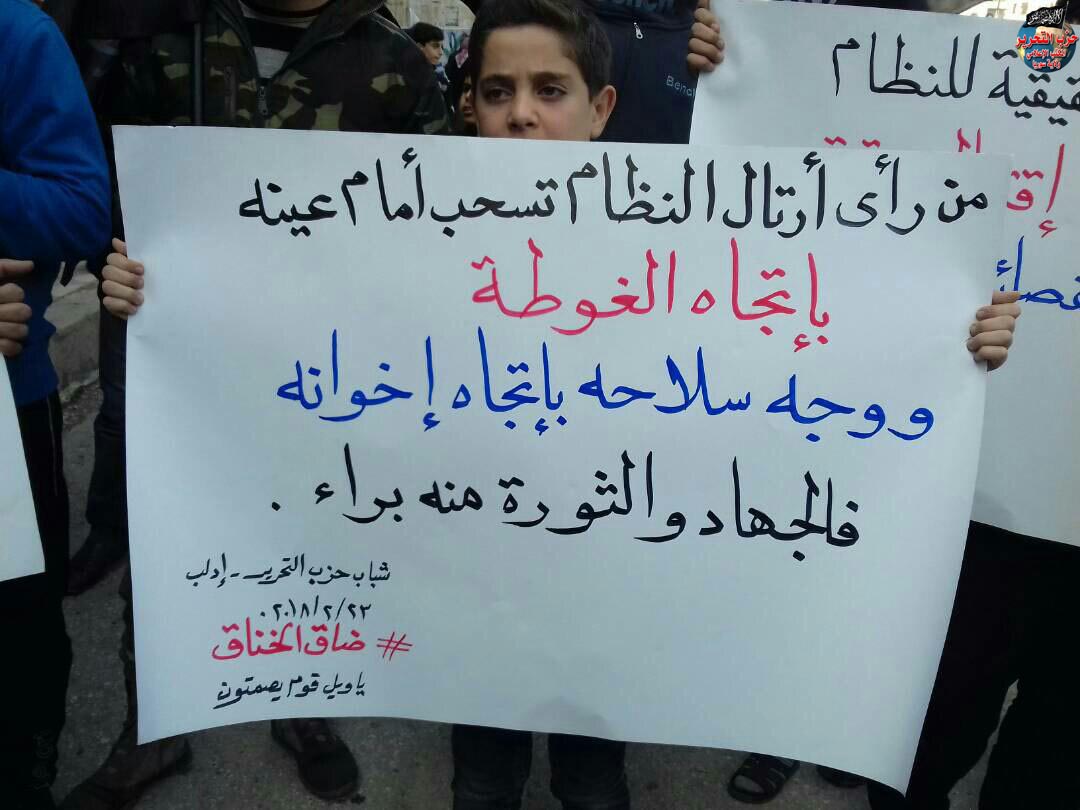 من رأى أرتال النظام تسحب أمام عينه
بإتجاه الغوطة
ووجه سلاحه بإتجاه إخوانه
فالجهاد والثورة منه براء .
شباب حزب التحرير - إدلب
٢٠١٨/٢/٢٣.
# ضاق الخناق
ياويل قوم يصمتون
قيقية للنظام
حزب التحرير
المكتب الإعلامي
ولاية سوريا
Bench